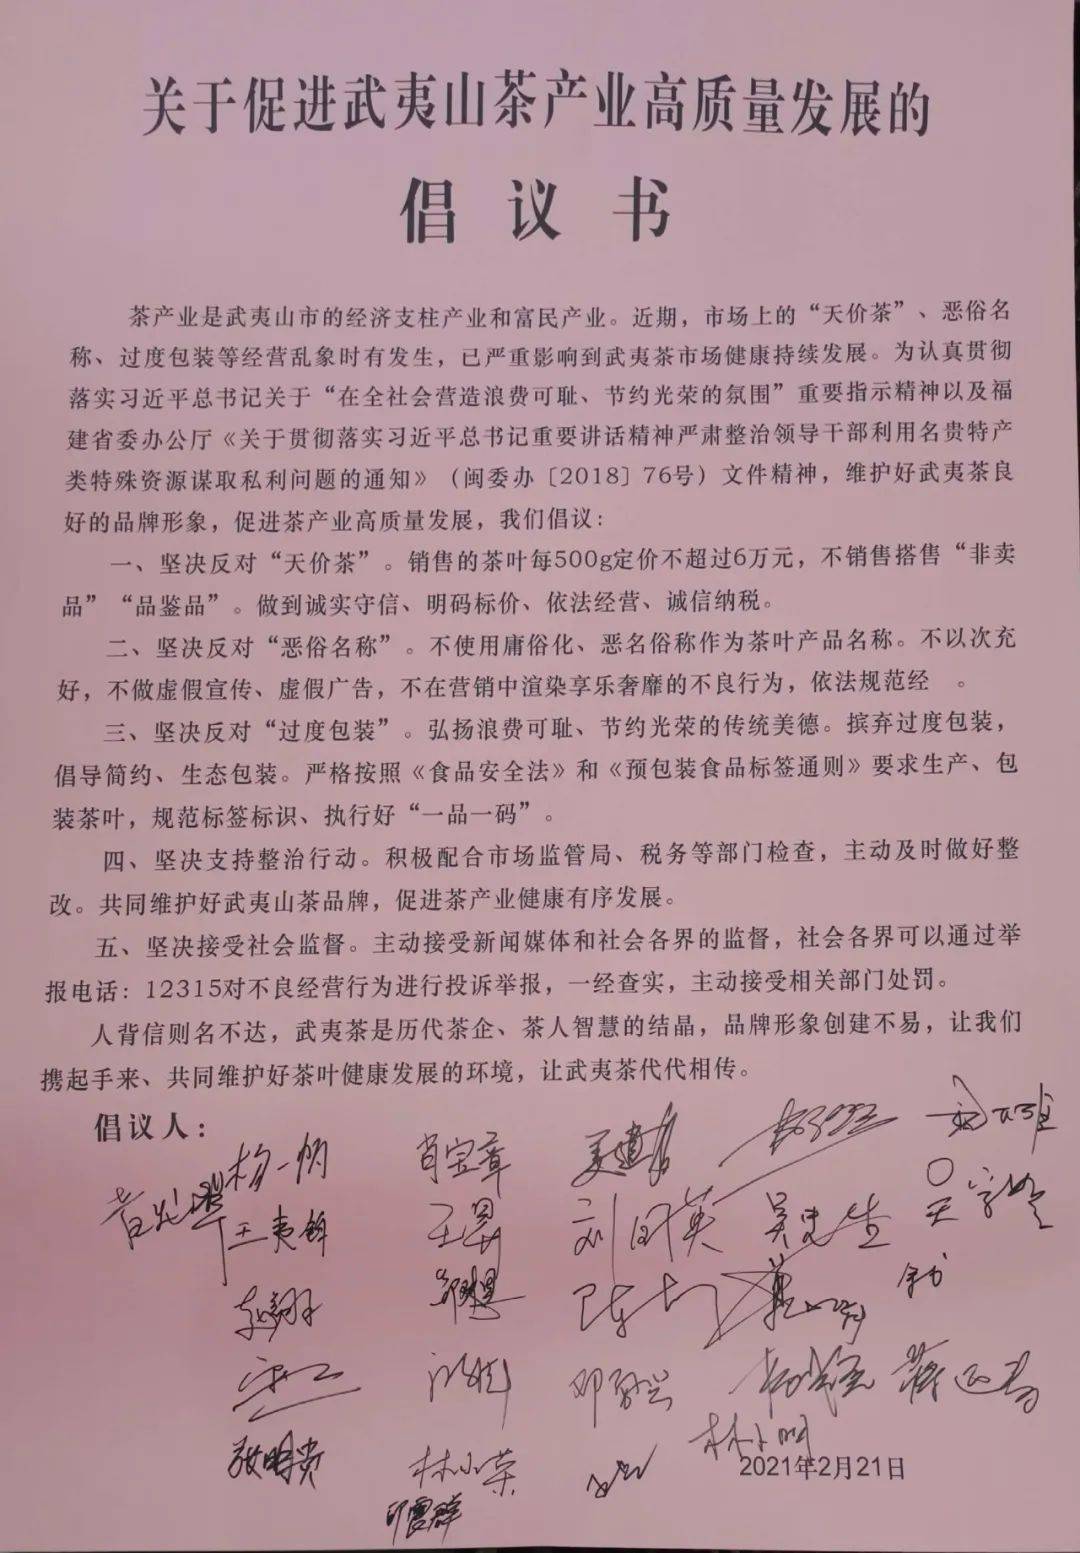 关于促进武夷山茶产业高质量发展的
倡议书
茶产业是武夷山市的经济支柱产业和富民产业。近期，市场上的“天价茶”、恶俗名
称、过度包装等经营乱象时有发生，已严重影响到武夷茶市场健康持续发展。为认真贯彻
落实习近平总书记关于“在全社会营造浪费可耻、节约光荣的氛围”重要指示精神以及福
建省委办公厅《关于贯彻落实习近平总书记重要讲话精神严肃整治领导干部利用名贵特产
类特殊资源谋取私利问题的通知》（闽委办〔2018〕76号）文件精神，维护好武夷茶良
好的品牌形象，促进茶产业高质量发展，我们倡议：
一、坚决反对“天价茶”。销售的茶叶每500g定价不超过6万元，不销售搭售“非卖
品”“品鉴品”。做到诚实守信、明码标价、依法经营、诚信纳税。
二、坚决反对“恶俗名称”。不使用庸俗化、恶名俗称作为茶叶产品名称。不以次充
好，不做虚假宣传、虚假广告，不在营销中渲染享乐奢靡的不良行为，依法规范经 。
三、坚决反对“过度包装”。弘扬浪费可耻、节约光荣的传统美德。摈弃过度包装，
倡导简约、生态包装。严格按照《食品安全法》和《预包装食品标签通则》要求生产、包
装茶叶，规范标签标识、执行好“一品一码”。
四、坚决支持整治行动。积极配合市场监管局、税务等部门检查，主动及时做好整
改。共同维护好武夷山茶品牌，促进茶产业健康有序发展。
五、坚决接受社会监督。主动接受新闻媒体和社会各界的监督，社会各界可以通过举
报电话：12315对不良经营行为进行投诉举报，一经查实，主动接受相关部门处罚。
人背信则名不达，武夷茶是历代茶企、茶人智慧的结晶，品牌形象创建不易，让我们
携起手来、共同维护好茶叶健康发展的环境，让武夷茶代代相传。
倡议人：
杨一帆 肖宝章
王夷 王昙 刘国英
林小荣
2021年2月21日